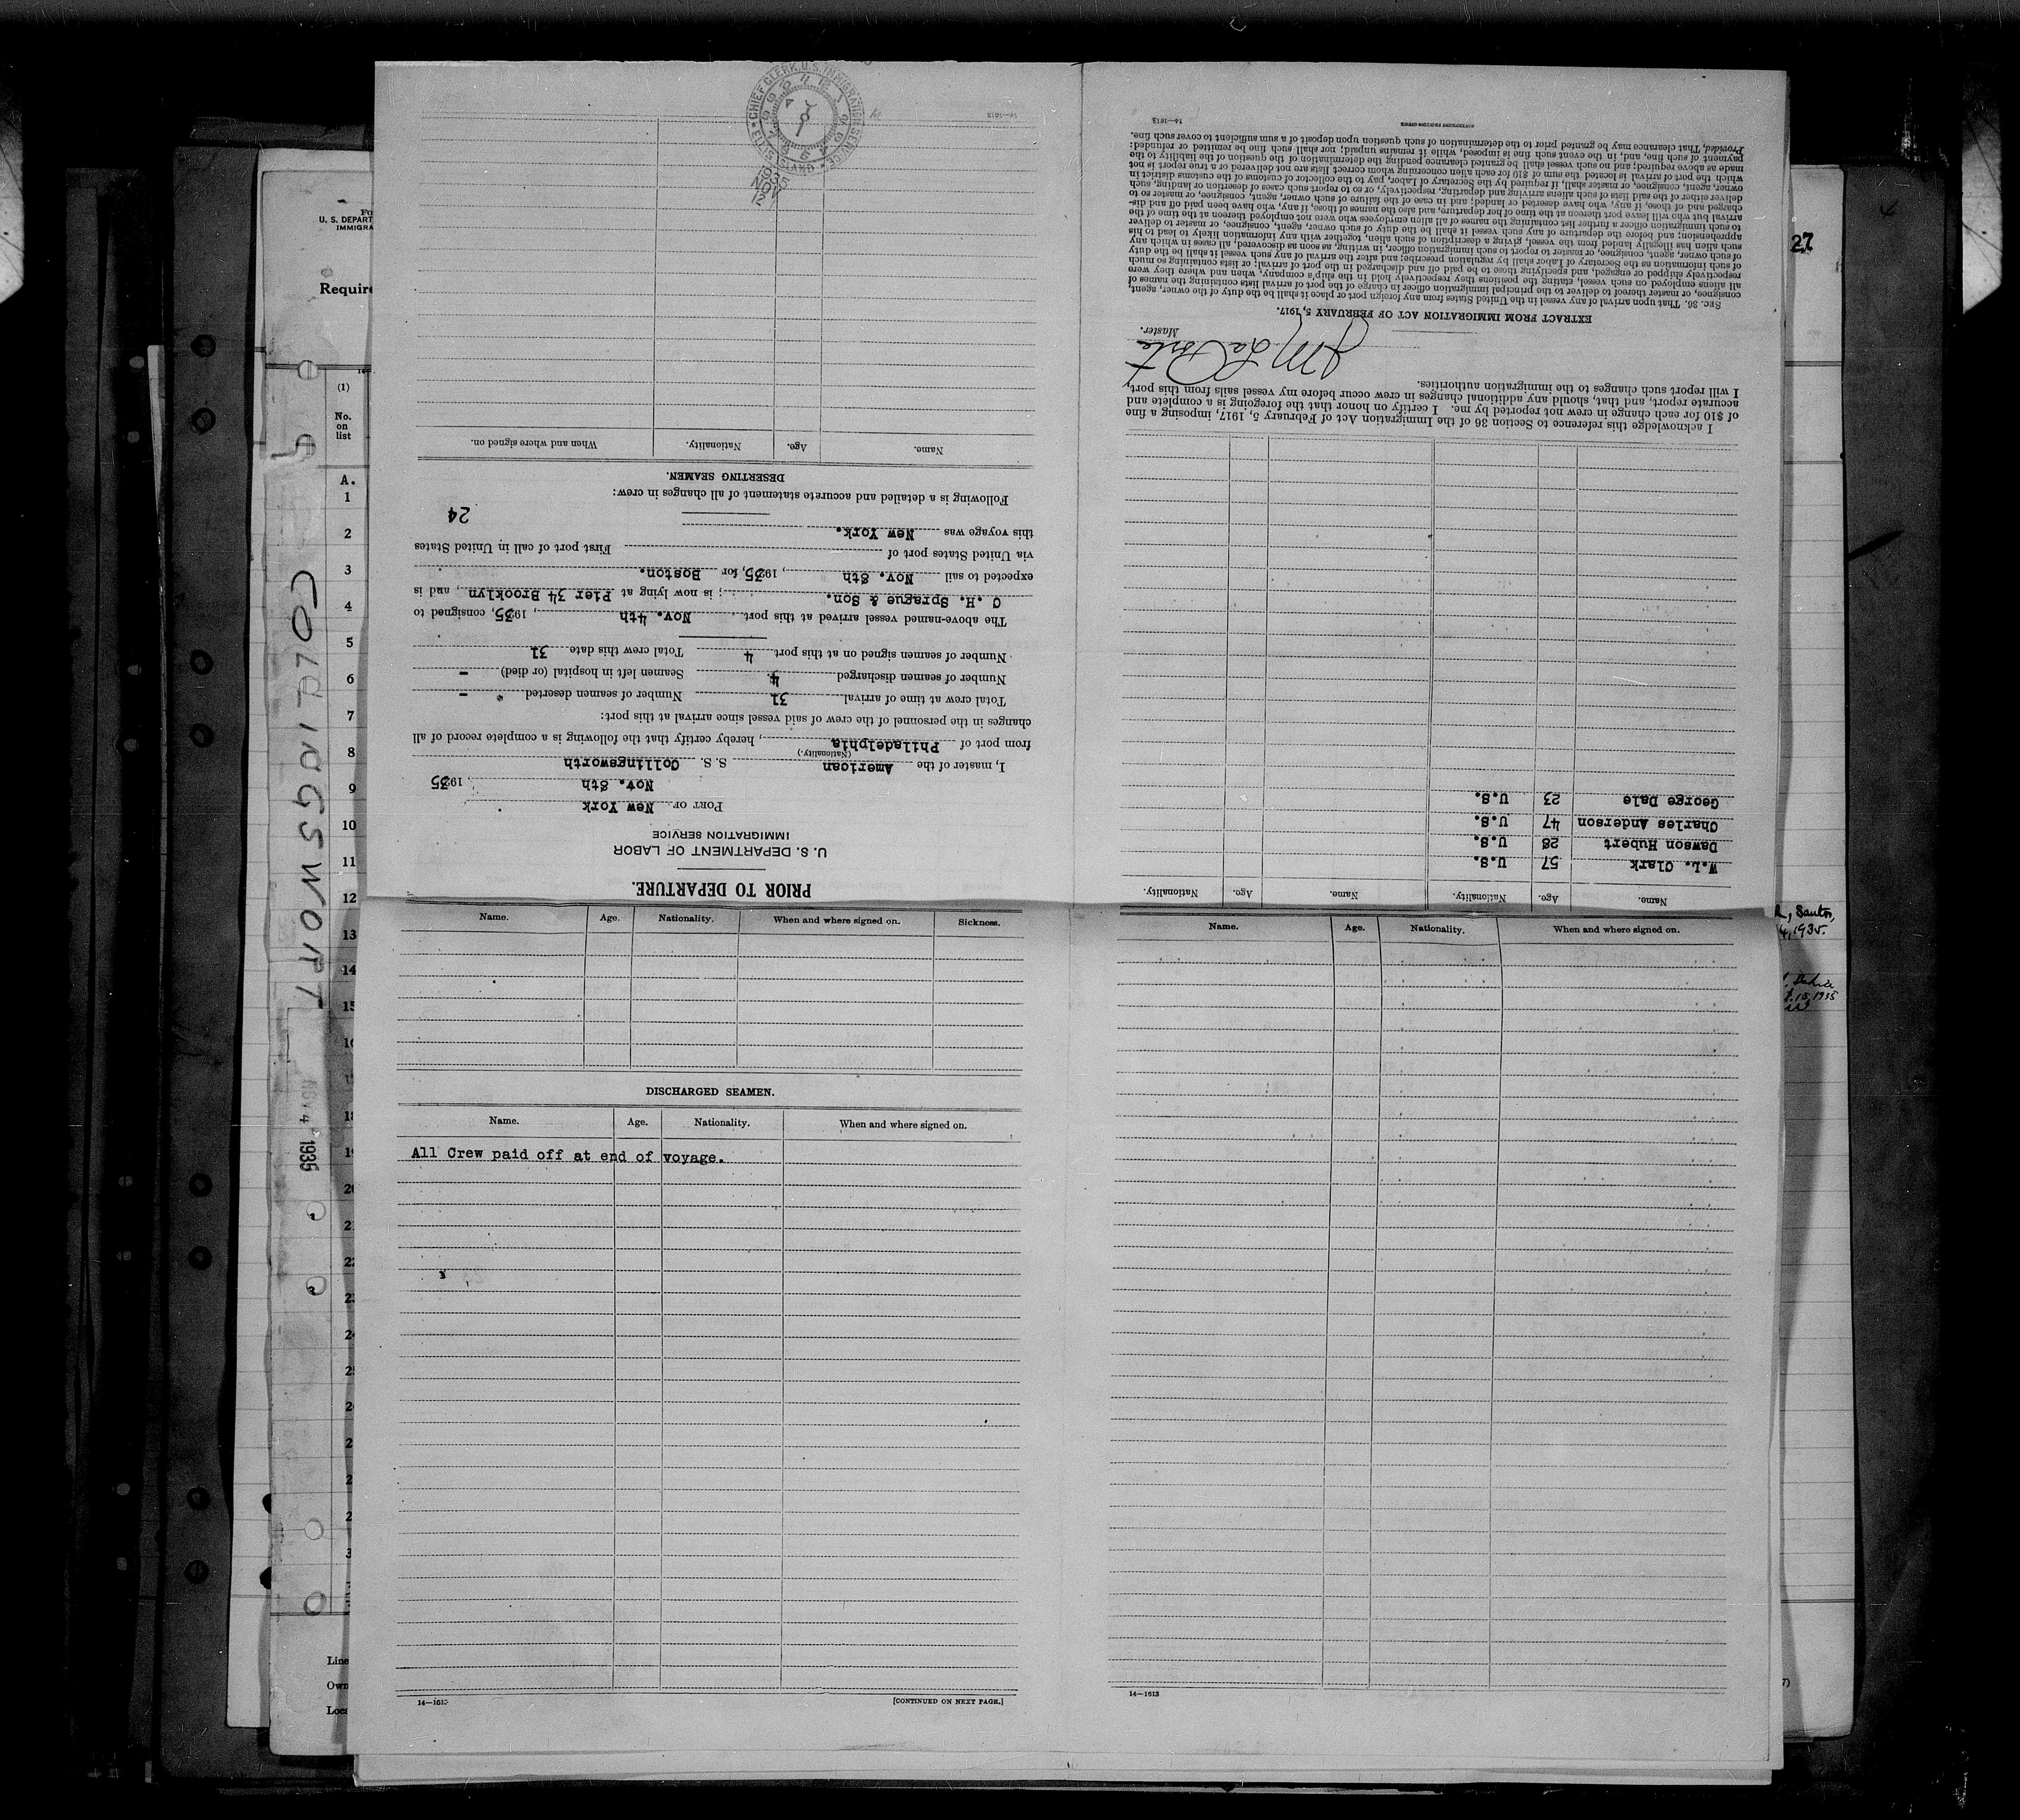 PRIOR TO DEPARTURE.
U. S. DEPARTMENT OF LABOR
IMMIGRATION SERVICE
PORT OF New York
Nov. 8th, 1935
I, master of the American S. S. Collingsworth
(Nationality.)
from port of Philadelphia, hereby certify that the following is a complete record of all
changes in the personnel of the crew of said vessel since arrival at this port:
Total crew at time of arrival 31 Number of seamen deserted -
Number of seamen discharged 4 Seamen left in hospital (or died) -
Number of seamen signed on at this port 4 Total crew this date 31
The above-named vessel arrived at this port Nov. 4th, 1935, consigned to
C .H. Sprague & Son. ; is now lying at Pier 34 Brooklyn, and is
expected to sail Nov. 8th, 1935, for Boston.
via United States port of First port of call in United States
this voyage was New York.
24
Following is a detailed and accurate statement of all changes in crew:
DESERTING SEAMEN.
Name. Age. Nationality. When and where signed on.
14—1613
CHIEF CLERK, U. S. IMMIGRATION SERVICE
ELLIS ISLAND
1935
NOV
12
Name. Age. Nationality. Name. Age. Nationality.
W.L. Clark 57 U.S.
Dawson Hubert 28 U.S.
Charles Anderson 47 U.S.
George Dale 23 U.S.
I acknowledge this reference to Section 36 of the Immigration Act of February 5, 1917, imposing a fine
of $10 for each change in crew not reported by me. I certify on honor that the foregoing is a complete and
accurate report, and that, should any additional changes in crew occur before my vessel sails from this port,
I will report such changes to the immigration authorities.
Master.
EXTRACT FROM IMMIGRATION ACT OF FEBRUARY 5, 1917.
SEC. 36. That upon arrival of any vessel in the United States from any foreign port or place it shall be the duty of the owner, agent,
consignee, or master thereof to deliver to the principal immigration officer in charge of the port of arrival lists containing the names of
all aliens employed on such vessel, stating the positions they respectively hold in the ship's company, when and where they were
respectively shipped or engaged, and specifying those to be paid off and discharged in the port of arrival; or lists containing so much
of such information as the Secretary of Labor shall by regulation prescribe; and after the arrival of any such vessel it shall be the duty
of such owner, agent, consignee, or master to report to such immigration officer, in writing, as soon as discovered, all cases in which any
such alien has illegally landed from the vessel, giving a description of such alien, together with any information likely to lead to his
apprehension; and before the departure of any such vessel it shall be the duty of such owner, agent, consignee, or master to deliver
to such immigration officer a further list containing the names of all alien employees who were not employed thereon at the time of the
arrival but who will leave port thereon at the time of her departure, and also the names of those, if any, who have been paid off and dis-
charged and of those, if any, who have deserted or landed; and in case of the failure of such owner, agent, consignee, or master to
deliver either of the said lists of such aliens arriving and departing, respectively, or so to report such cases of desertion or landing, such
owner, agent, consignee, or master shall, if required by the Secretary of Labor, pay to the collector of customs of the customs district in
which the port of arrival is located the sum of $10 for each alien concerning whom correct lists are not delivered or a true report is not
made as above required; and no such vessel shall be granted clearance pending the determination of the question of the liability to the
payment of such fine, and, in the event such fine is imposed, while it remains unpaid; nor shall such fine be remitted or refunded:
Provided, That clearance may be granted prior to the determination of such question upon deposit of a sum sufficient to cover such fine.
14—1613
Name. Age. Nationality. When and where signed on. Sickness.
DISCHARGED SEAMEN.
Name. Age. Nationality. When and where signed on.
All Crew paid off at end of voyage.
14—1613 [CONTINUED ON NEXT PAGE.]
Name. Age. Nationality. When and where signed on.
14—1613
U. S. DEPART
IMMIGRA
Require
(1)
No.
on
list
A.
1
2
3
4
5
6
7
8
9
10
11
12
13
14
15
COLLINGSWORT
NOV 4 1935
Line
Own
Loca
27
Santos,
1935.